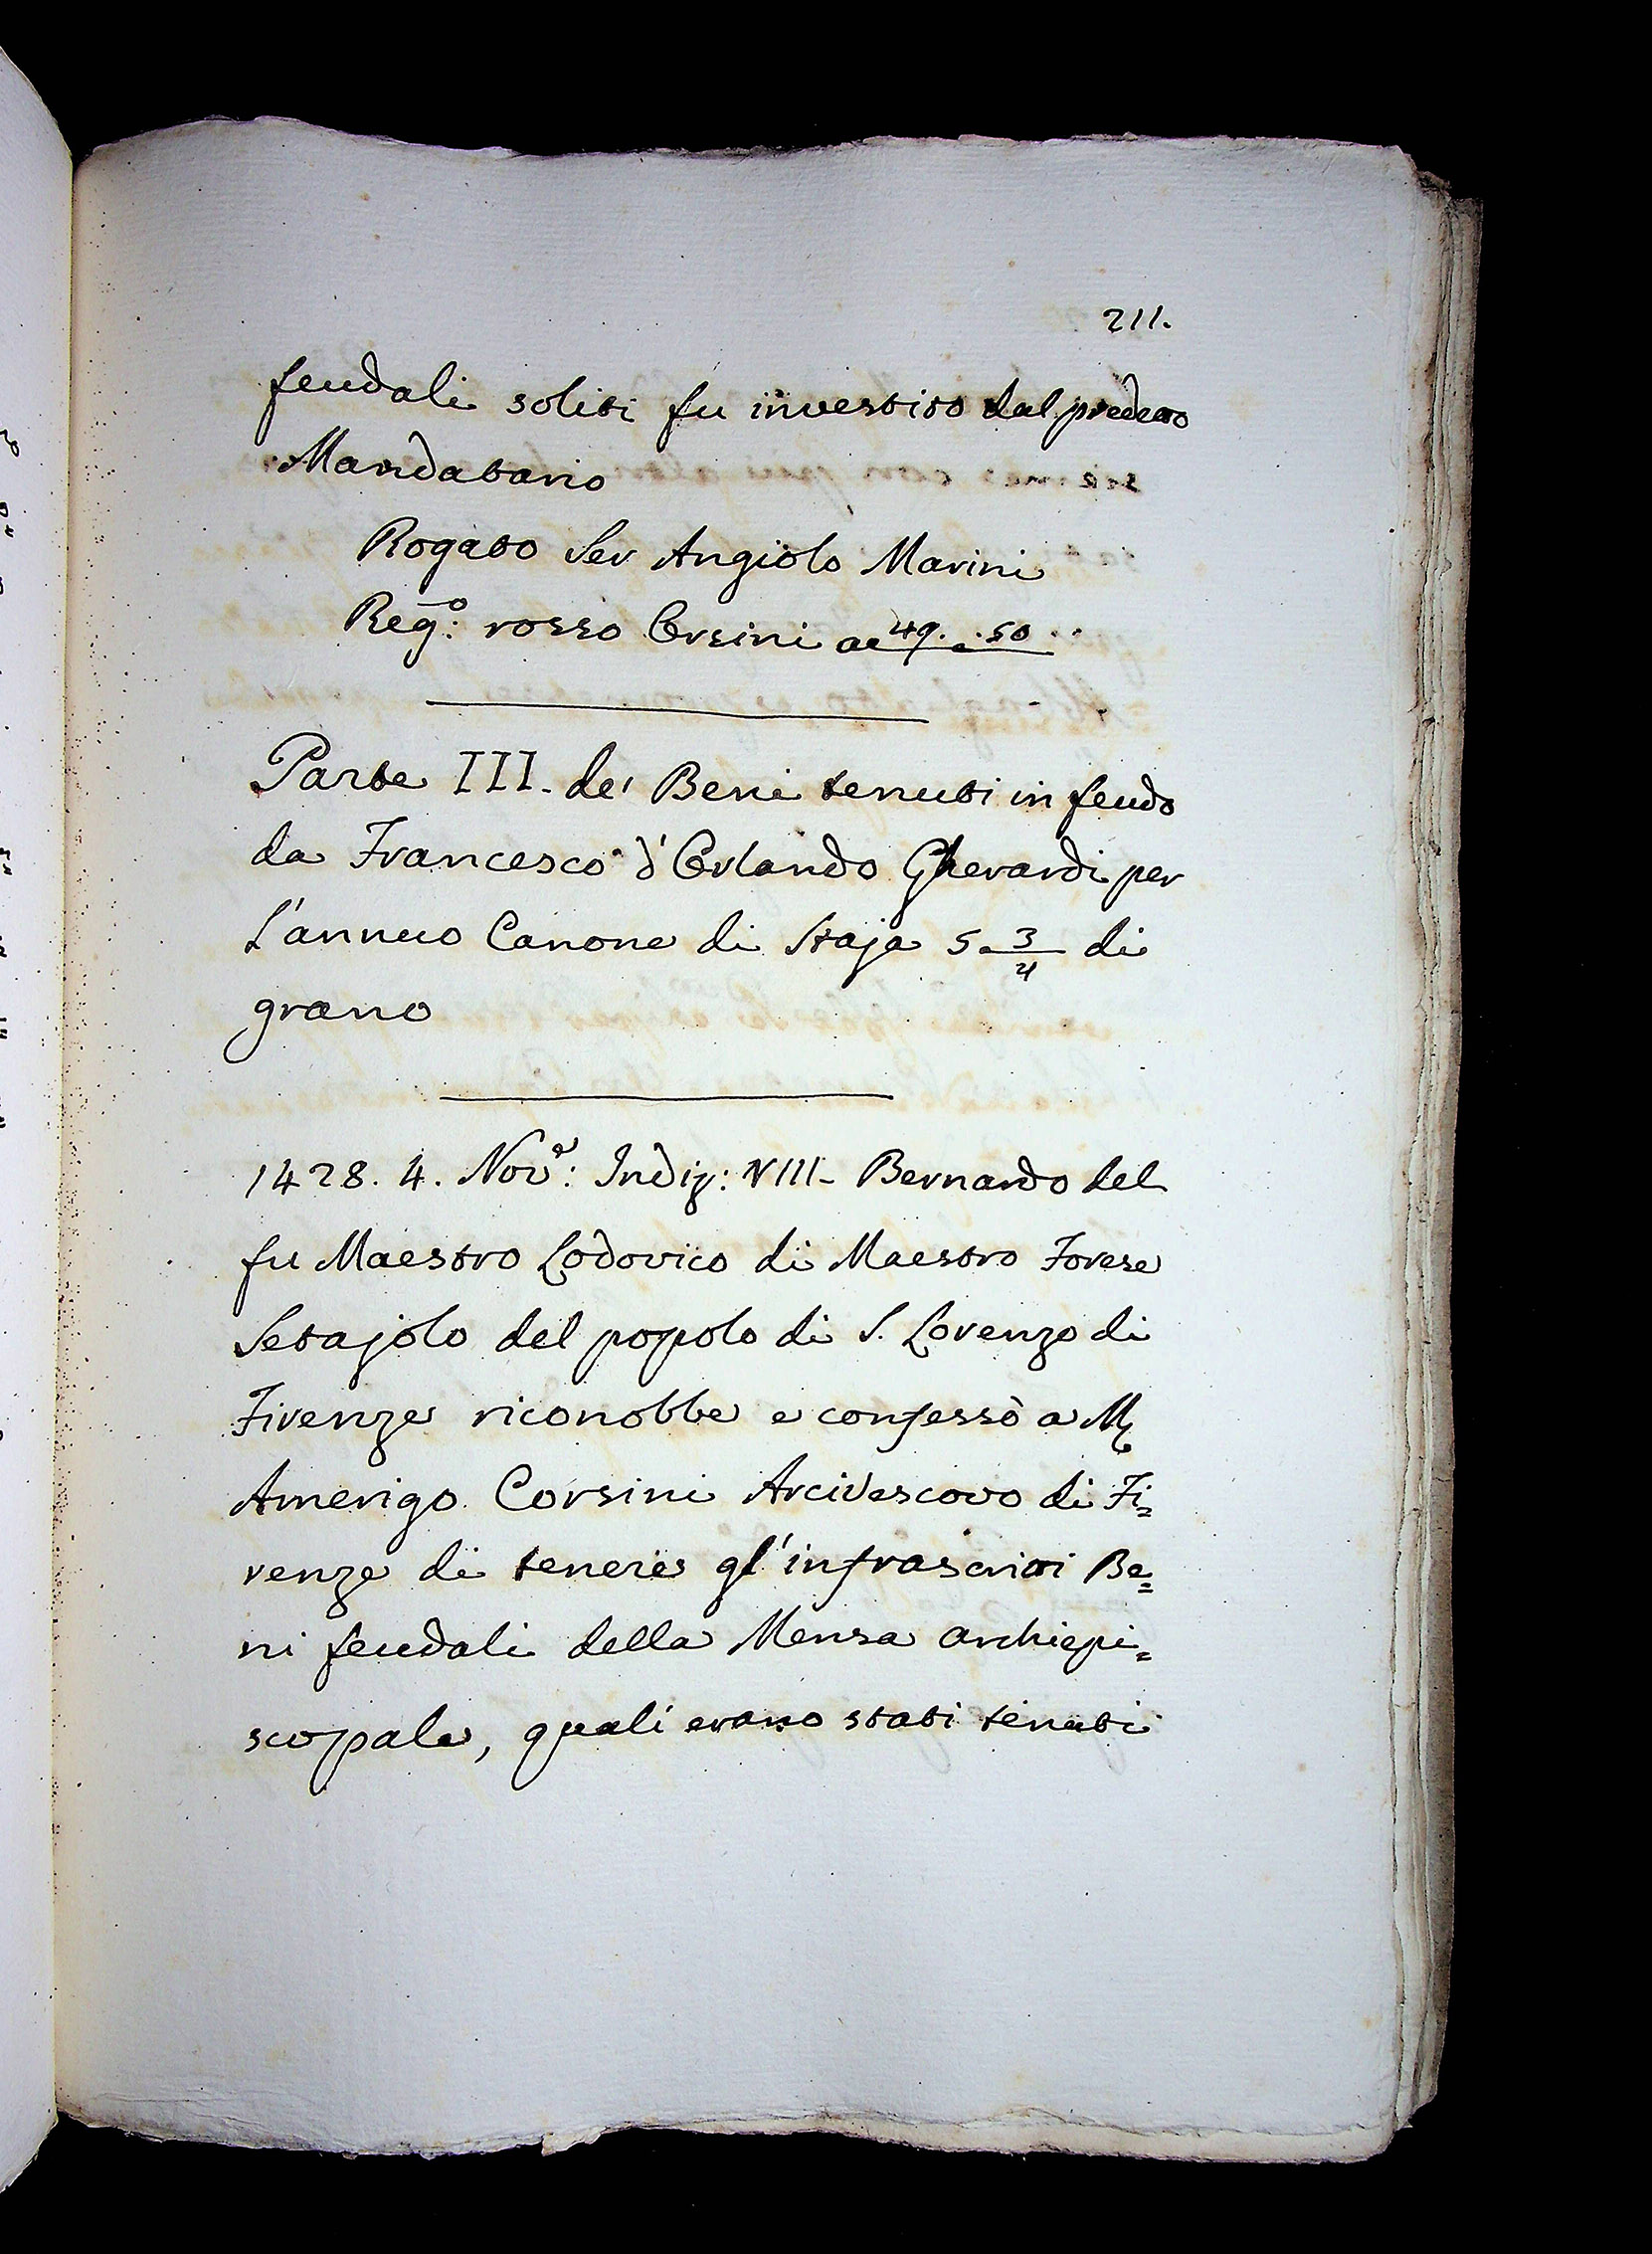 211.
feudali soliti fu investito dal predetto
Mandatario
Rogato Ser Angiolo Marini
Reg.º: rosso Orsini a c 49. . 50
Parte III. de' Beni tenuti in feudo
da Francesco d'Orlando Gherardi per
l'annuo Canone di Staja 5. 3/4 di
grano
1428. 4. Nov.e: Indiz: VIII. Bernardo del
fu Maestro Lodovico di Maestro Forese
Setajolo del popolo di S. Lorenzo di
Firenze riconobbe e confessò a M.
Amerigo Corsini Arcivescovo di Fi=
renze di tenere gl'infrascritti Be=
ni feudali della Mensa archiepi=
scopale, quali erano stati tenuti